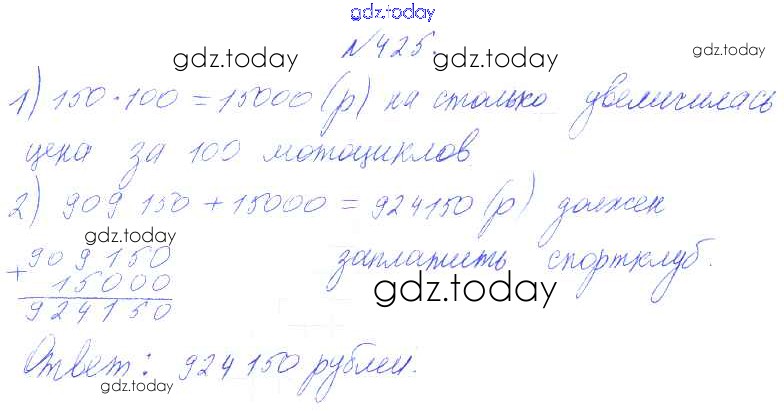 gdz.today
№425.
gdz.today gdz.today
1) 150·100=15000(р) на столько увеличилась
цена за 100 мотоциклов
2) 909 150+15000=924150(р) должен
gdz.today
909 150 заплатить спортклуб.
+ 15000
gdz.today
924150
Ответ: 924150 рублей.
gdz.today
gdz.today